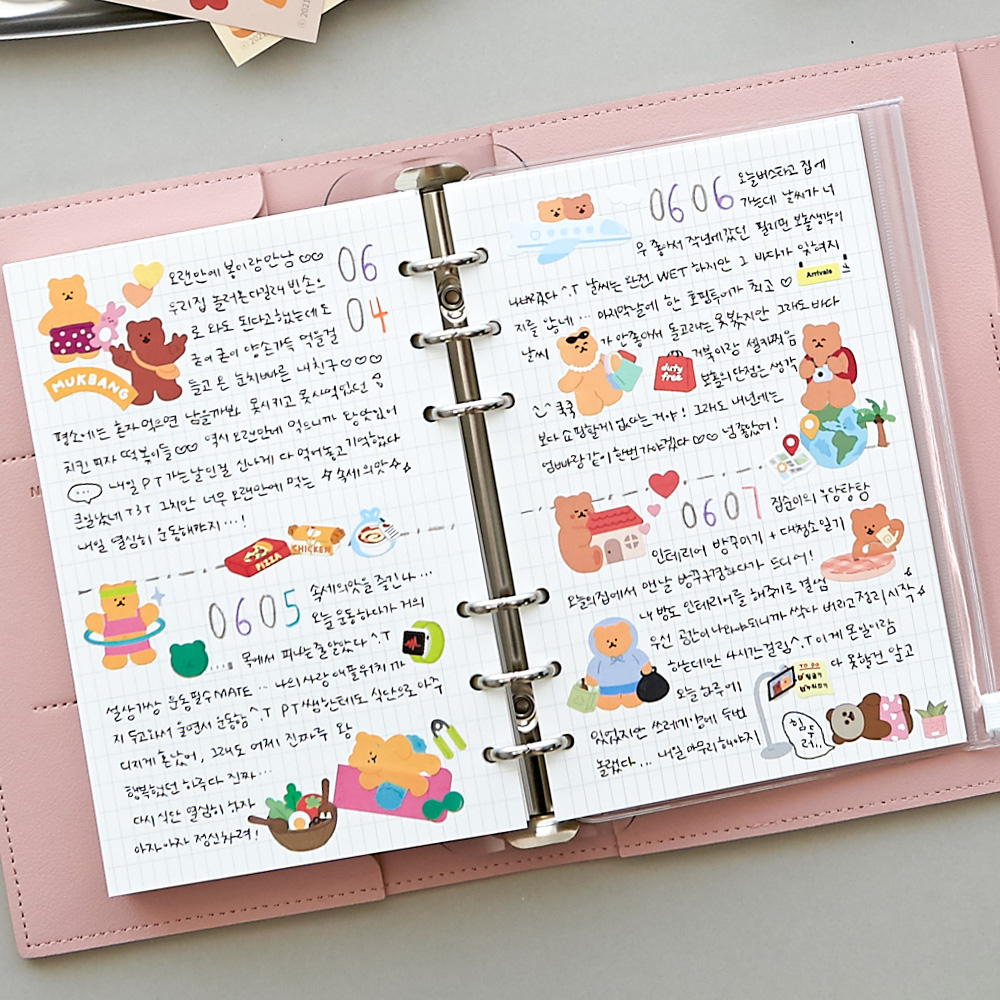 오랜만에 봉이랑 만남♡♡
06
우리집 놀러온다길래 빈손으
로 와도 된다고 했는데도
04
굳이 굳이 양손가득 먹을걸
들고 온 눈치빠른 내친구♡♡♡
MUKBANG
평소에는 혼자 먹으면 남을까봐 못시키고 못사먹었던
치킨 피자 떡볶이들♡♡ 역시 오랜만에 먹으니까 탕맛있어
내일 PT 가는 날인걸 신나게 다 먹어놓고 기억했다
큰일났네 T3T 그치만 너무 오랜만에 먹는 속세의맛
내일 열심히 운동해야지...!
PIZZA
CHICKEN
0605
속세의맛을 즐긴 나...
오늘 운동하다가 거의
목에서 피나는 줄 알았다 ^.T
설상가상 운동필수MATE... 나의 사랑 애플워치까
지 두고와서 울면서 운동함 ^.T PT쌤한테도 식단으로 아주
디지게 혼났어, 그래도 어제 진짜루 왕
행복했던 하루다 진짜...
다시 식단 열심히 하자
아자아자 정신차려!
0606
오늘 버스타고 집에
가는데 날씨가 너
무 좋아서 작년에 갔던 필리핀 보홀생각이
^.T 날씨는 완전 WET 하지만 그 바다가 잊혀지
Arrivals
지를 않네... 마지막날에 한 호핑투어가 최고♡
날씨
가 안좋아서 돌고래는 못봤지만 그래도 바다
거북이랑 셀카찍음
duty free
보홀의 단점은 생각
쿡쿡
보다 쇼핑할게 없다는거야! 그래도 내년에는
엄빠랑 같이 한번 가야겠다♡♡ 넘 좋았어!
0607
집순이의 우당탕탕
인테리어 방꾸미기 + 대청소일기
오늘의집에서 맨날 방꾸구경하다가 드디어!
내 방도 인테리어를 해주기로 결심
우선 공간이 나와야되니까 싹다 버리고 정리시작
하는데만 4시간걸림 ^.T 이게 몬일이람
오늘 하루에
TO DO
다 못할건 알고
있었지만 쓰레기양에 두번
놀랬다... 내일 마무리해야지
힘들러...